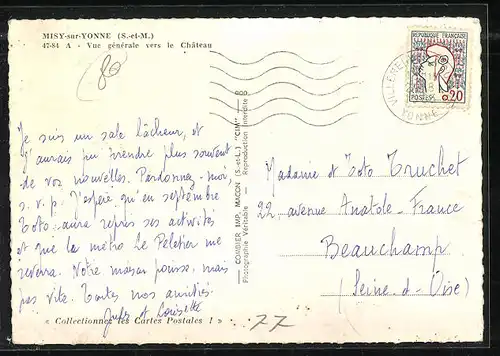 MISY-sur-YONNE (S.-et-M.)
47-84 A - Vue générale vers le Château
80
Je suis un sale lâcheur, et
j'aurais pu prendre plus souvent
de vos nouvelles. Pardonnez-moi,
s.v.p. J'espère qu'en septembre
Toto aura repris ses activités
et que la métro Le Peletier me
reverra. Notre maison pousse, mais
pas vite. Toutes nos amitiés.
Jules et Louisette
« Collectionnez les Cartes Postales ! »
COMBIER IMP. MACON (S.-et-L.) "CIM"
Photographie Véritable - Reproduction Interdite
REPUBLIQUE FRANÇAISE
POSTES
0,20
YONNE
Madame et Toto Truchet
22, avenue Anatole-France
Beauchamp
(Seine-et-Oise)
77